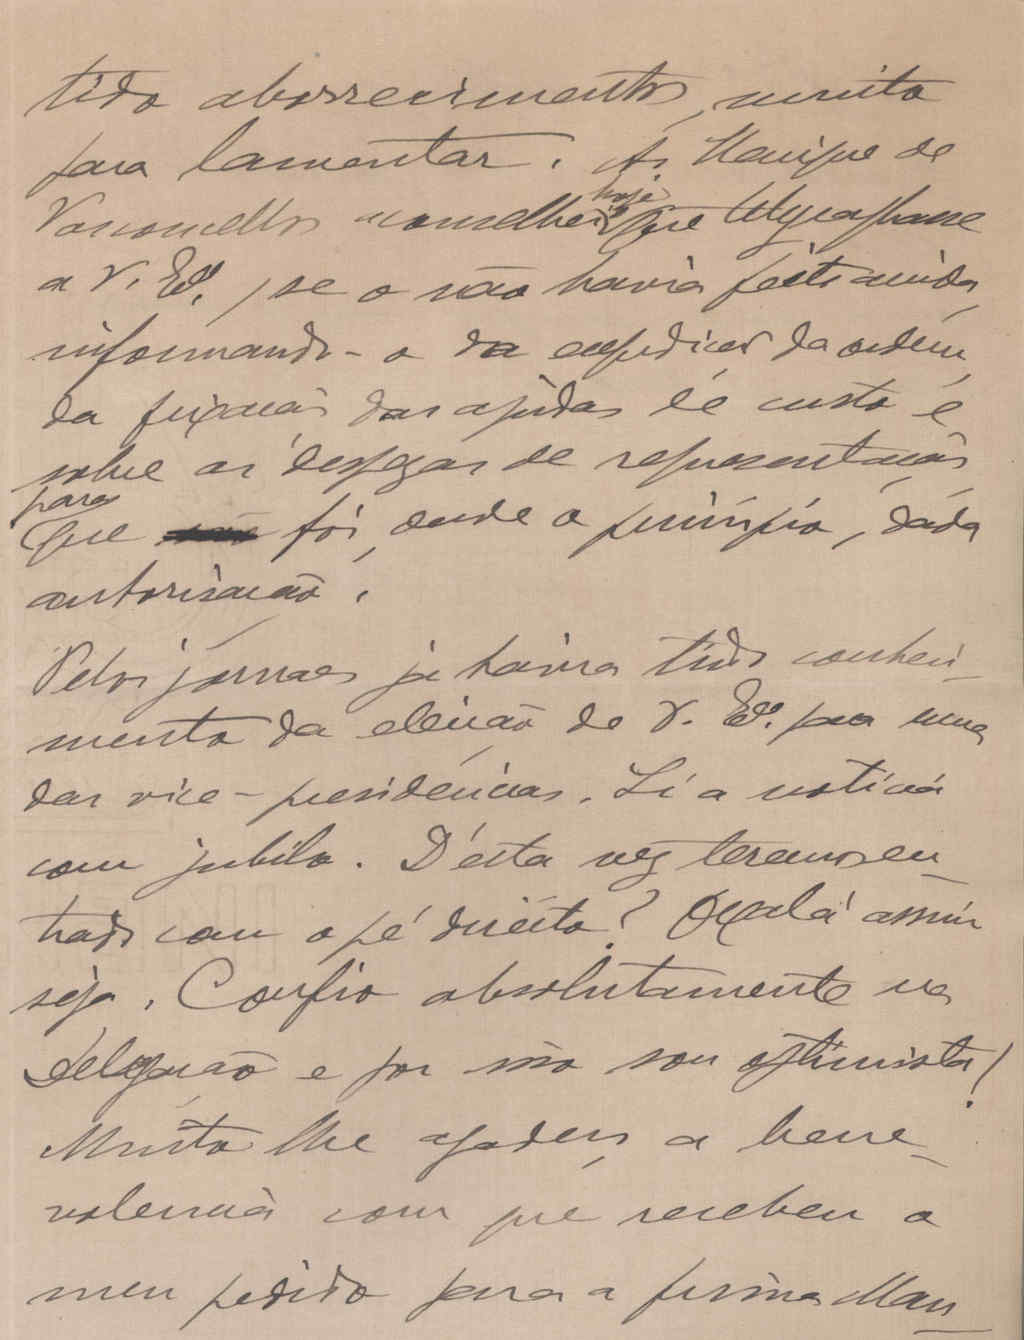 tido aborrecimentos, muito
para lamentar. Ao Henrique de
Vasconcellos aconselhei hoje que telegraphasse
a V. Exª., se o não havia feito ainda,
informando-o da expedição da ordem,
da fixação das ajudas de custo e
sobre as despezas de representação
para que foi, desde o principio, dada
autorisação.
Pelos jornaes já havia tido conheci-
mento da eleição de V. Exª. para uma
das vice-presidencias. Li a noticia
com jubilo. D'esta vez teremos en-
trado com o pé direito? Oxalá assim
seja. Confio absolutamente na
Delegação e por isso sou optimista!
Muito lhe agradeço a bene-
volencia com que recebeu o
meu pedido para a firma Man-